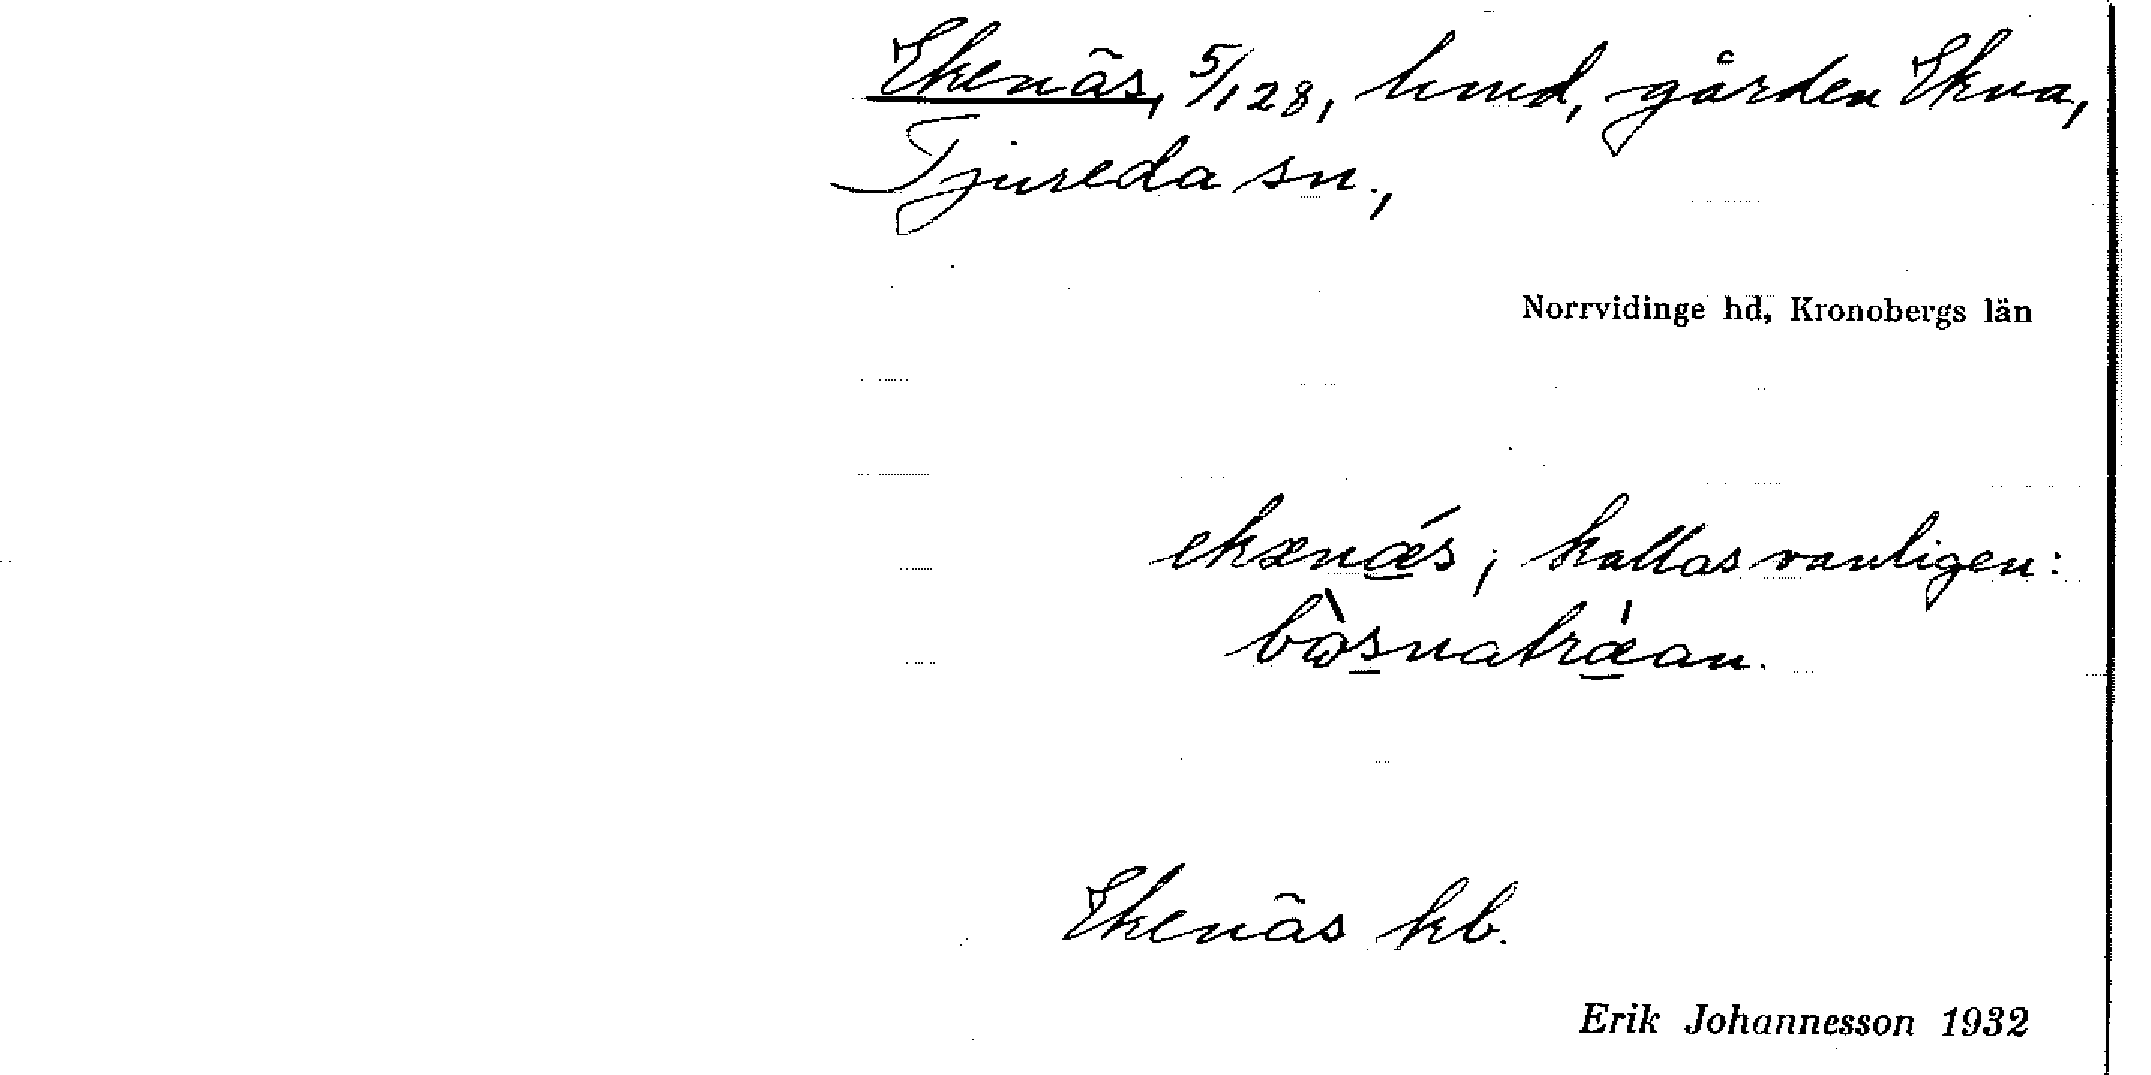 Ekenäs, 5/128, hmd, gården Ekna,
Tjureda sn.,
Norrvidinge hd, Kronobergs län
ekænǽ̲s, kallas vanligen:
Ekenäs kb.
Erik Johannesson 1932